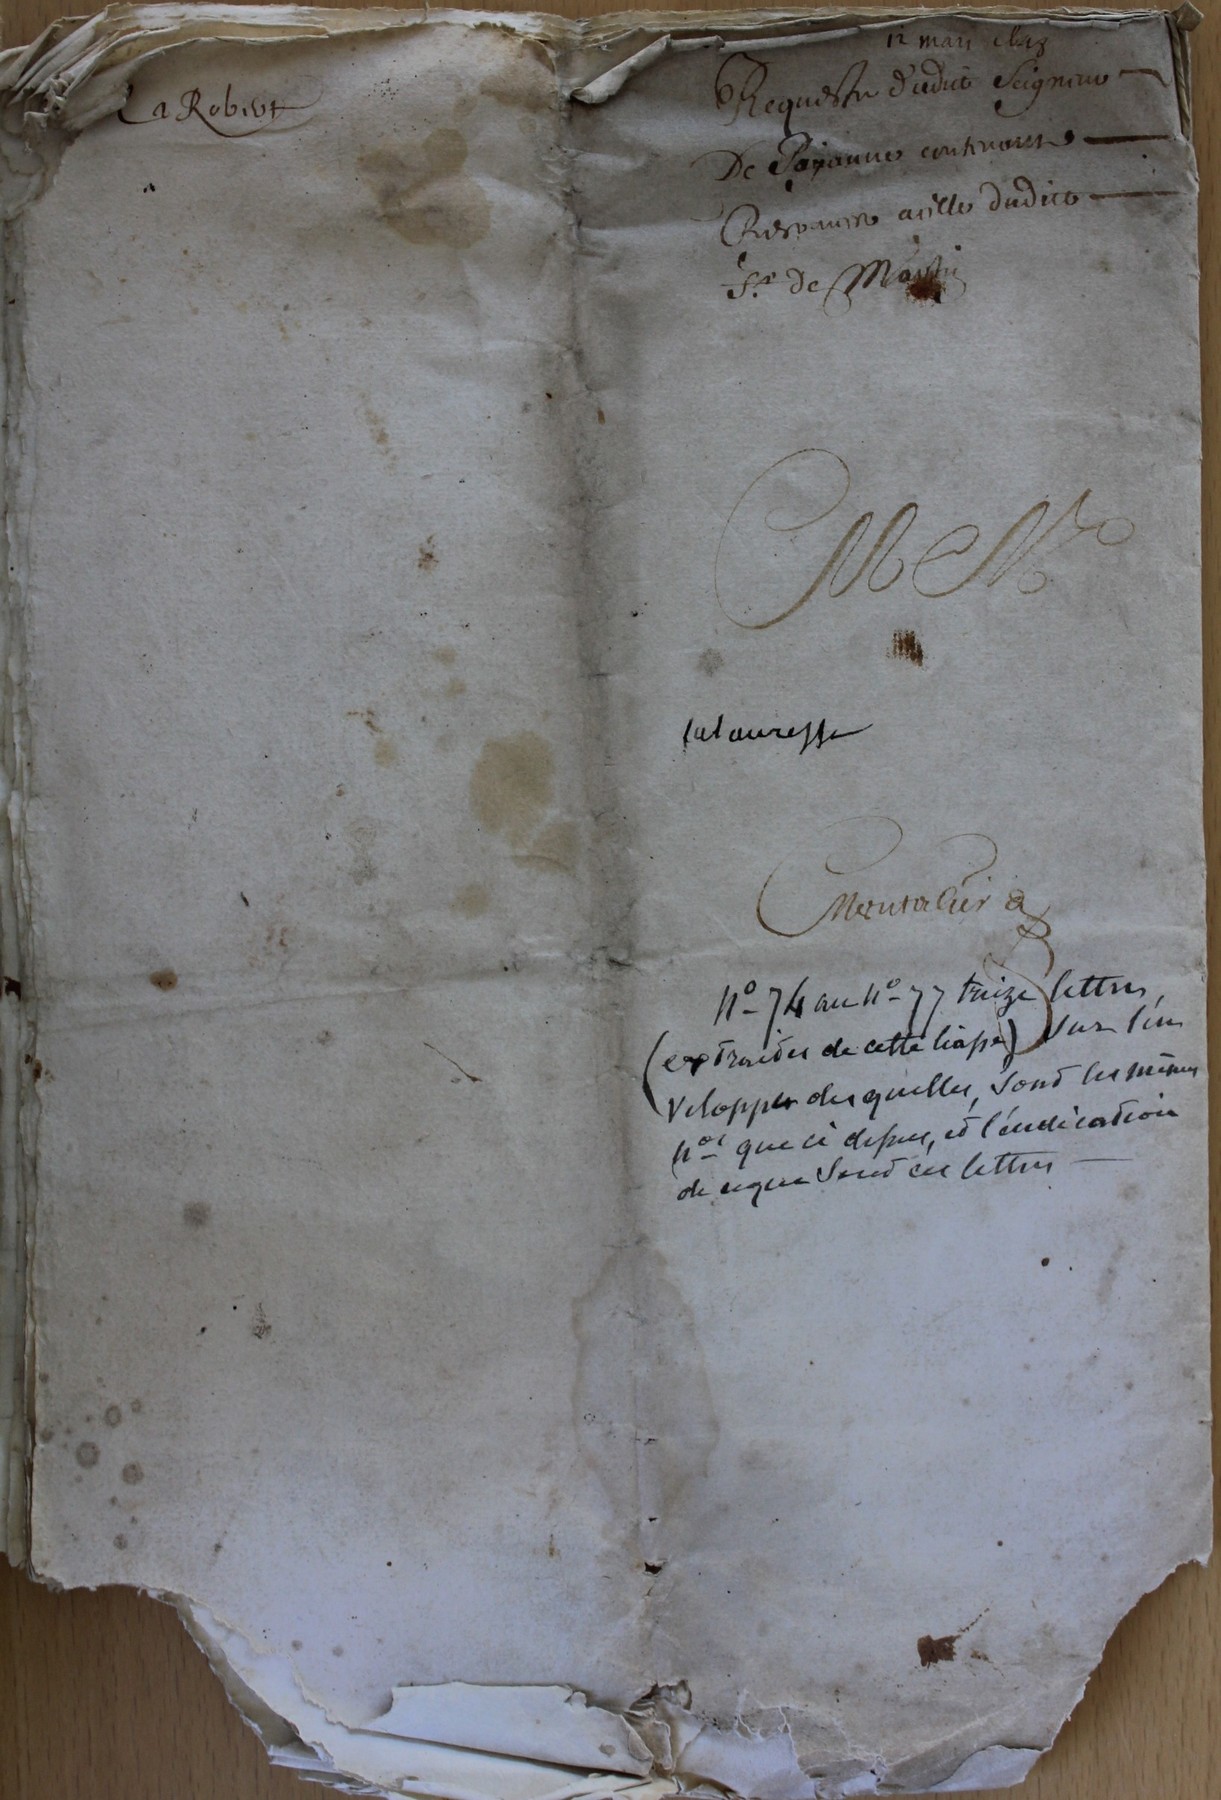 La Robert
12 mars
Requeste dudit Seigneur
De Poyanne contenant
Responce a celle dudit
Sr. de Mar
nº 74 au nº 77 treize lettres
(extraites de cette liasse) sur l'en
veloppe des quelles, sont les mêmes
nos que ci dessus, et l'indication
de ce que sont ces lettres